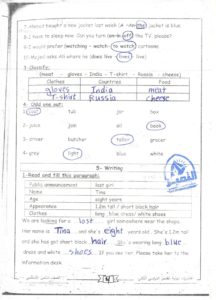 7- Ahmed bought a new jacket last week (A - An - The) jacket is blue.
8-I have to sleep now. Can you turn (on - off) the TV, please?
9-I would prefer (watching - watch - to watch) cartoon.
10-Majed asks Ali where he (does - lives - live)
3-Classify:
(meat - gloves - India - T-shirt - Russia - cheese)
Clothes Countries Food
gloves India meat
T-shirt Russia cheese
4. Odd one out:
tub jar box
2- juice jam oil book
3- driver butcher tailor grocer
4- grey light blue white
5- Writing
1-Read and fill this paragraph:
Public announcement lost girl
Name Tina
Age eight years
Appearance 1.2m tall / short black hair
Clothes long blue dress/ white shoes
We are looking for a lost girl somewhere near the shops.
Her name is Tina and she's eight years old. She's 1.2m tall
and she has got short black hair. She's wearing long blue
dress and white shoes. If you see her Please take her to the
information desk.